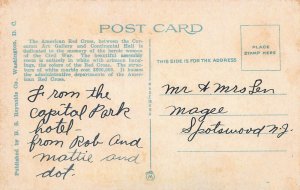 POST CARD
The American Red Cross, between the Cor-
coran Art Gallery and Continental Hall is
dedicated to the memory of the heroic women
of the Civil War. The beautiful assembly
room is entirely in white with armour hang-
ings, the colors of the Red Cross. The struc-
ture of white marble cost $800,000. It houses
the administrative departments of the Ameri-
can Red Cross.
PLACE
STAMP HERE
THIS SIDE IS FOR THE ADDRESS
Published by B. S. Reynolds Co., Washington, D. C.
From the
capital Park
hotel-
from Rob and
mattie and
dot.
Mr & Mrs Len
Magee
Spotswood N.J.